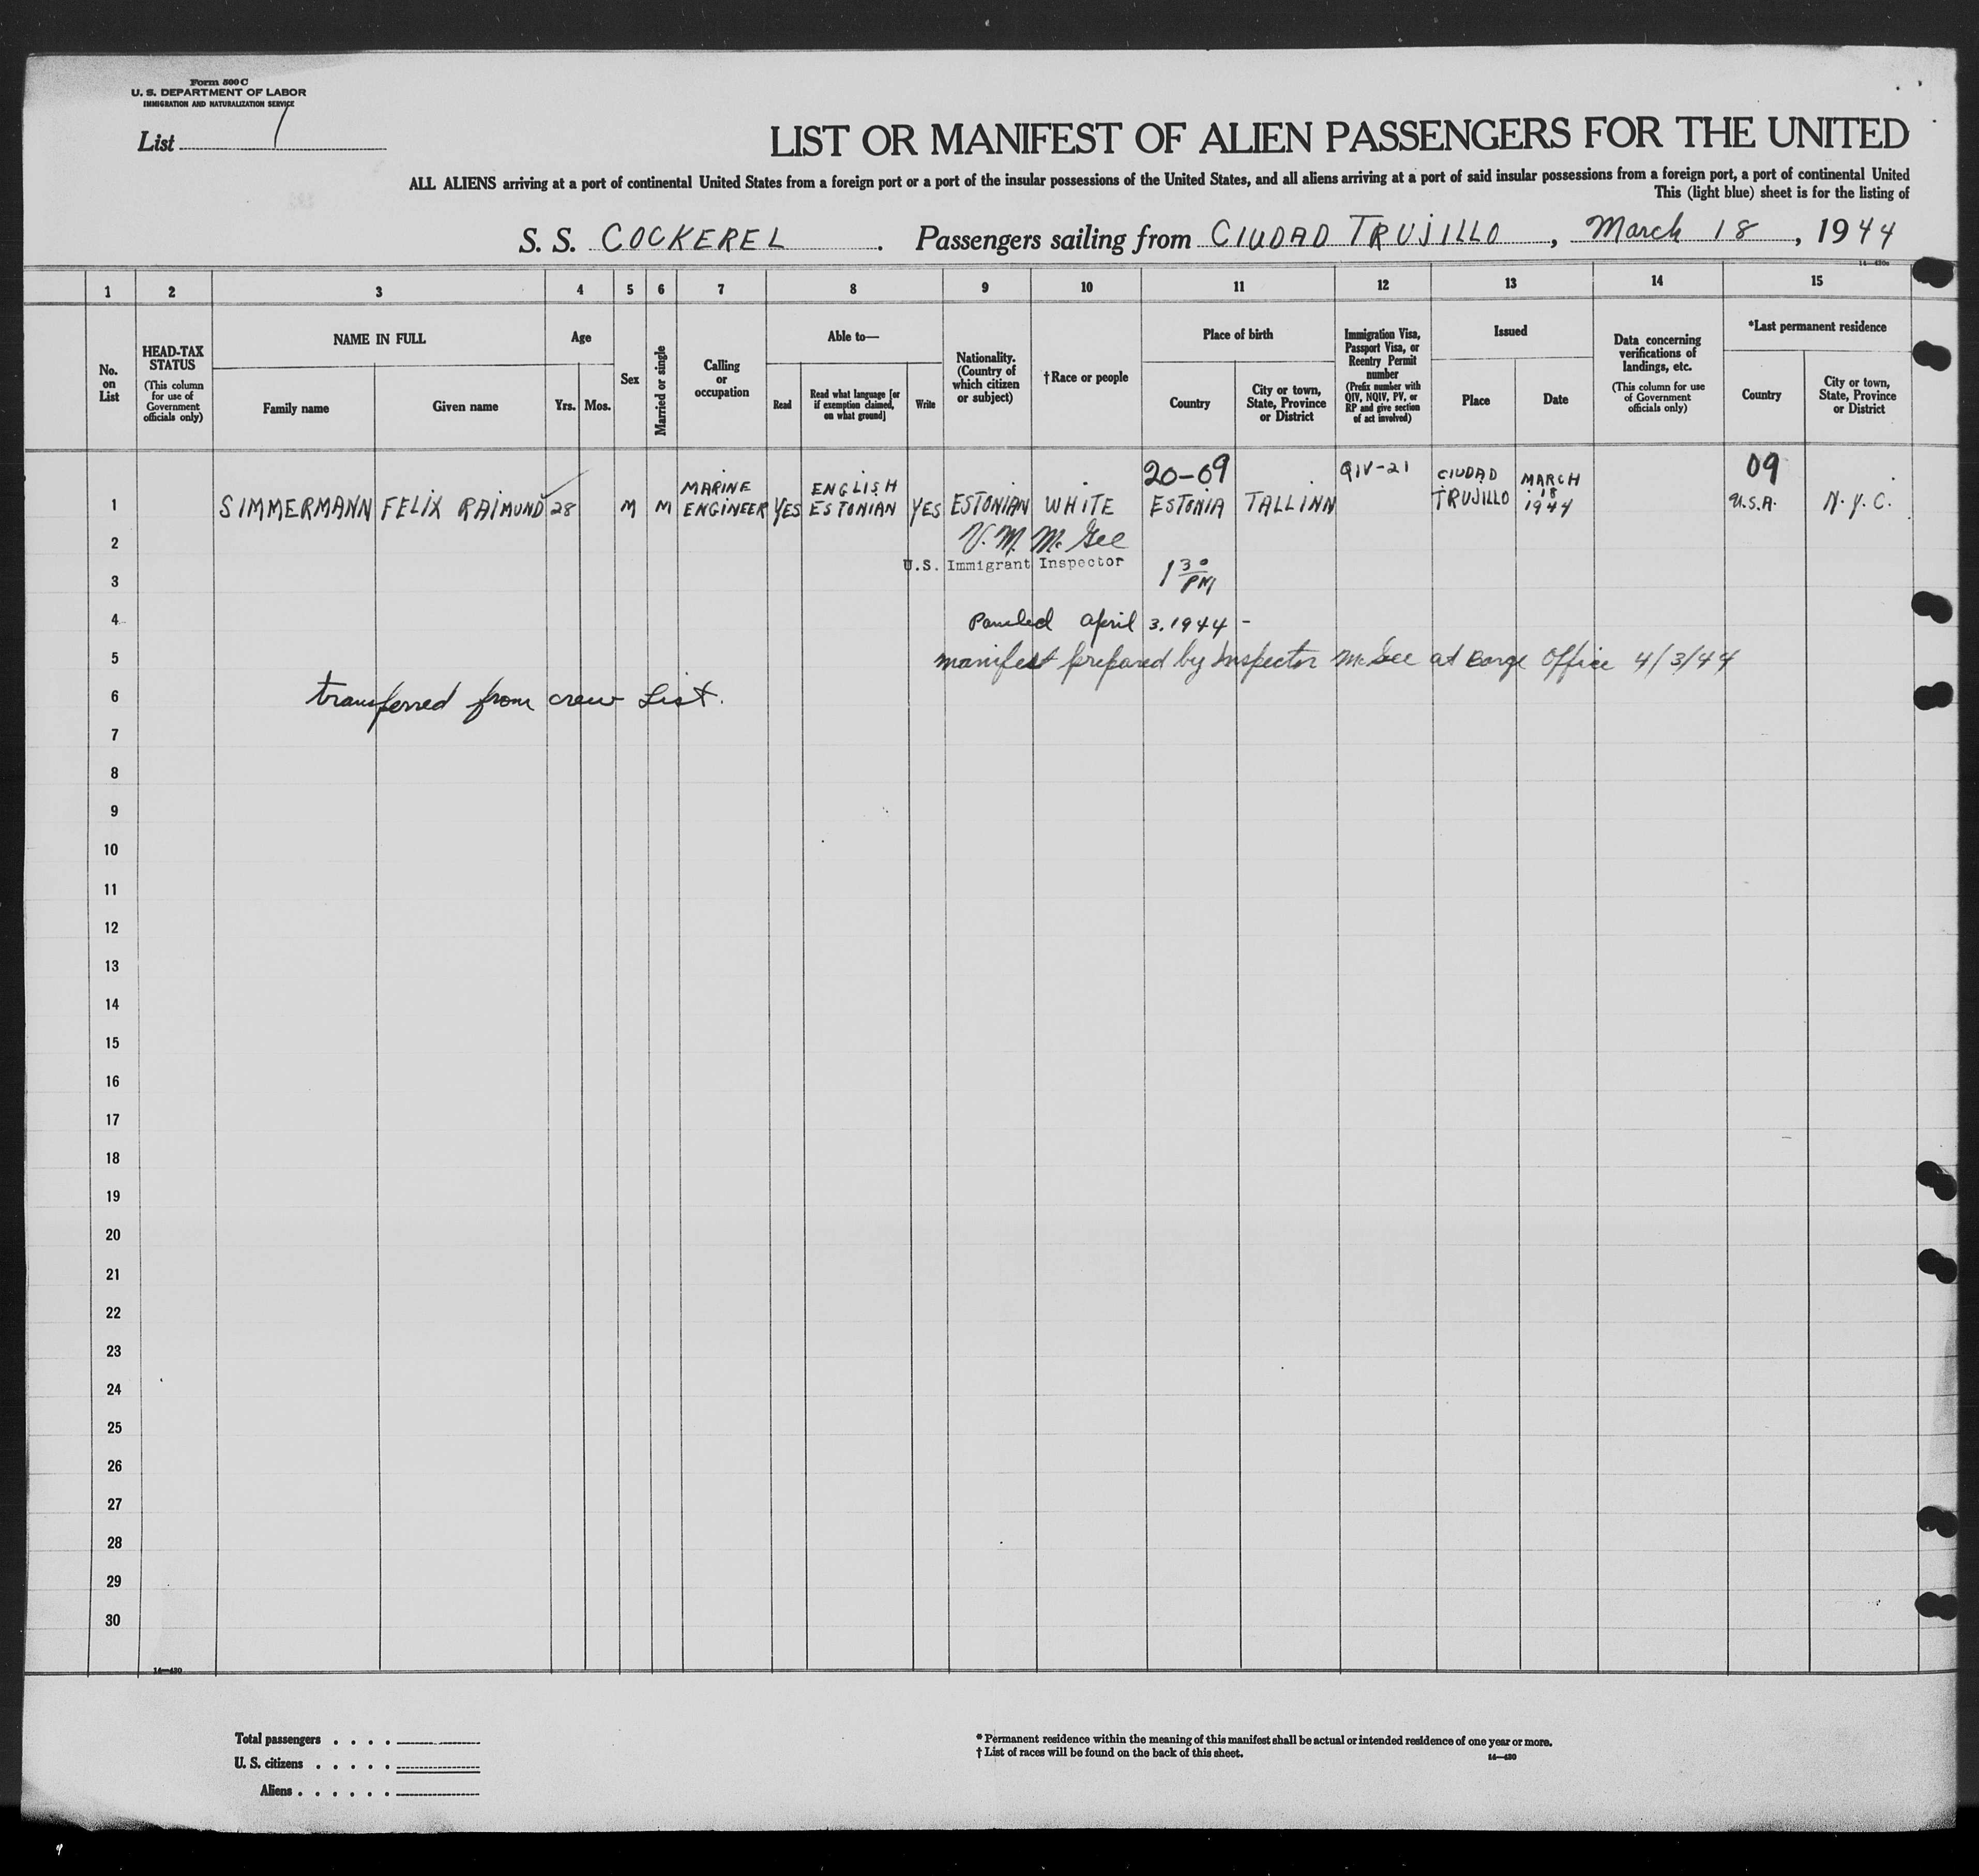 Form 500 C
U. S. DEPARTMENT OF LABOR
IMMIGRATION AND NATURALIZATION SERVICE
List 1
LIST OR MANIFEST OF ALIEN PASSENGERS FOR THE UNITED
ALL ALIENS arriving at a port of continental United States from a foreign port or a port of the insular possessions of the United States, and all aliens arriving at a port of said insular possessions from a foreign port, a port of continental United
This (light blue) sheet is for the listing of
S. S. COCKEREL . Passengers sailing from CIUDAD TRUJILLO , March 18 , 1944
1 2 3 4 5 6 7 8 9 10 11 12 13 14 15
No. on List
HEAD-TAX STATUS (This column for use of Government officials only)
NAME IN FULL
Family name
Given name
Age
Yrs. Mos.
Sex
Married or single
Calling or occupation
Able to—
Read
Read what language [or if exemption claimed, on what ground]
Write
Nationality. (Country of which citizen or subject)
†Race or people
Place of birth
Country
City or town, State, Province or District
Immigration Visa, Passport Visa, or Reentry Permit number (Prefix number with QIV, NQIV, PV, or RP and give section of act involved)
Issued
Place
Date
Data concerning verifications of landings, etc. (This column for use of Government officials only)
*Last permanent residence
Country
City or town, State, Province or District
20-09 09
1 SIMMERMANN FELIX RAIMUND 28 M M MARINE ENGINEER YES ENGLISH ESTONIAN YES ESTONIAN WHITE ESTONIA TALLINN QIV-21 CIUDAD TRUJILLO MARCH 18 1944 U.S.A. N.Y.C.
2 V. M. McGee
U.S. Immigrant Inspector
3 1 30 PM
4 April 3. 1944 -
5 manifest prepared by Inspector McGee at Barge Office 4/3/44
6 transferred from crew List.
7
8
9
10
11
12
13
14
15
16
17
18
19
20
21
22
23
24
25
26
27
28
29
30
14—430
Total passengers . . . .
U. S. citizens . . . . .
Aliens . . . . . .
* Permanent residence within the meaning of this manifest shall be actual or intended residence of one year or more.
† List of races will be found on the back of this sheet.
14—430